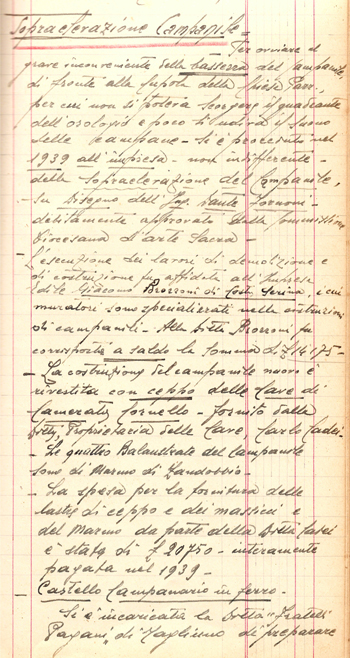 Sopraelevazione Campanile =
Per ovviare al
grave inconveniente della bassezza del campanile
di fronte alla Cupola della Chiesa Parr.,
per cui non si poteva scorgere il quadrante
dell'orologio e poco si udiva il suono
delle campane - si è proceduto nel
1939 all'impresa - non indifferente -
della Sopraelevazione del Campanile,
su disegno dell'Ing. Dante Fornoni -
debitamente approvato dalla Commissione
Diocesana d'Arte Sacra -
L'esecuzione dei lavori di demolizione e
di costruzione fu affidata all'Impresa
Edile Giacomo Brozzoni di Costa Serina, i cui
muratori sono specializzati nelle costruzioni
di campanili - Alla Ditta Brozzoni fu
corrisposta a saldo la somma di £ 14175 -
- La costruzione del campanile nuovo è
rivestita con ceppo delle Cave di
Camerata Cornello - fornito dalla
Ditta, Proprietaria delle Cave, Carlo
- Le quattro Balaustrate del Campanile
sono di Marmo di Zandobbio -
- La spesa per la fornitura delle
lastre di ceppo e dei massicci e
del Marmo da parte della Ditta
è stata di £ 20750 - interamente
pagata nel 1939 -
- Castello Campanario in ferro -
Si è incaricata la Ditta "Fratelli
Pagani" di Tagliuno di preparare